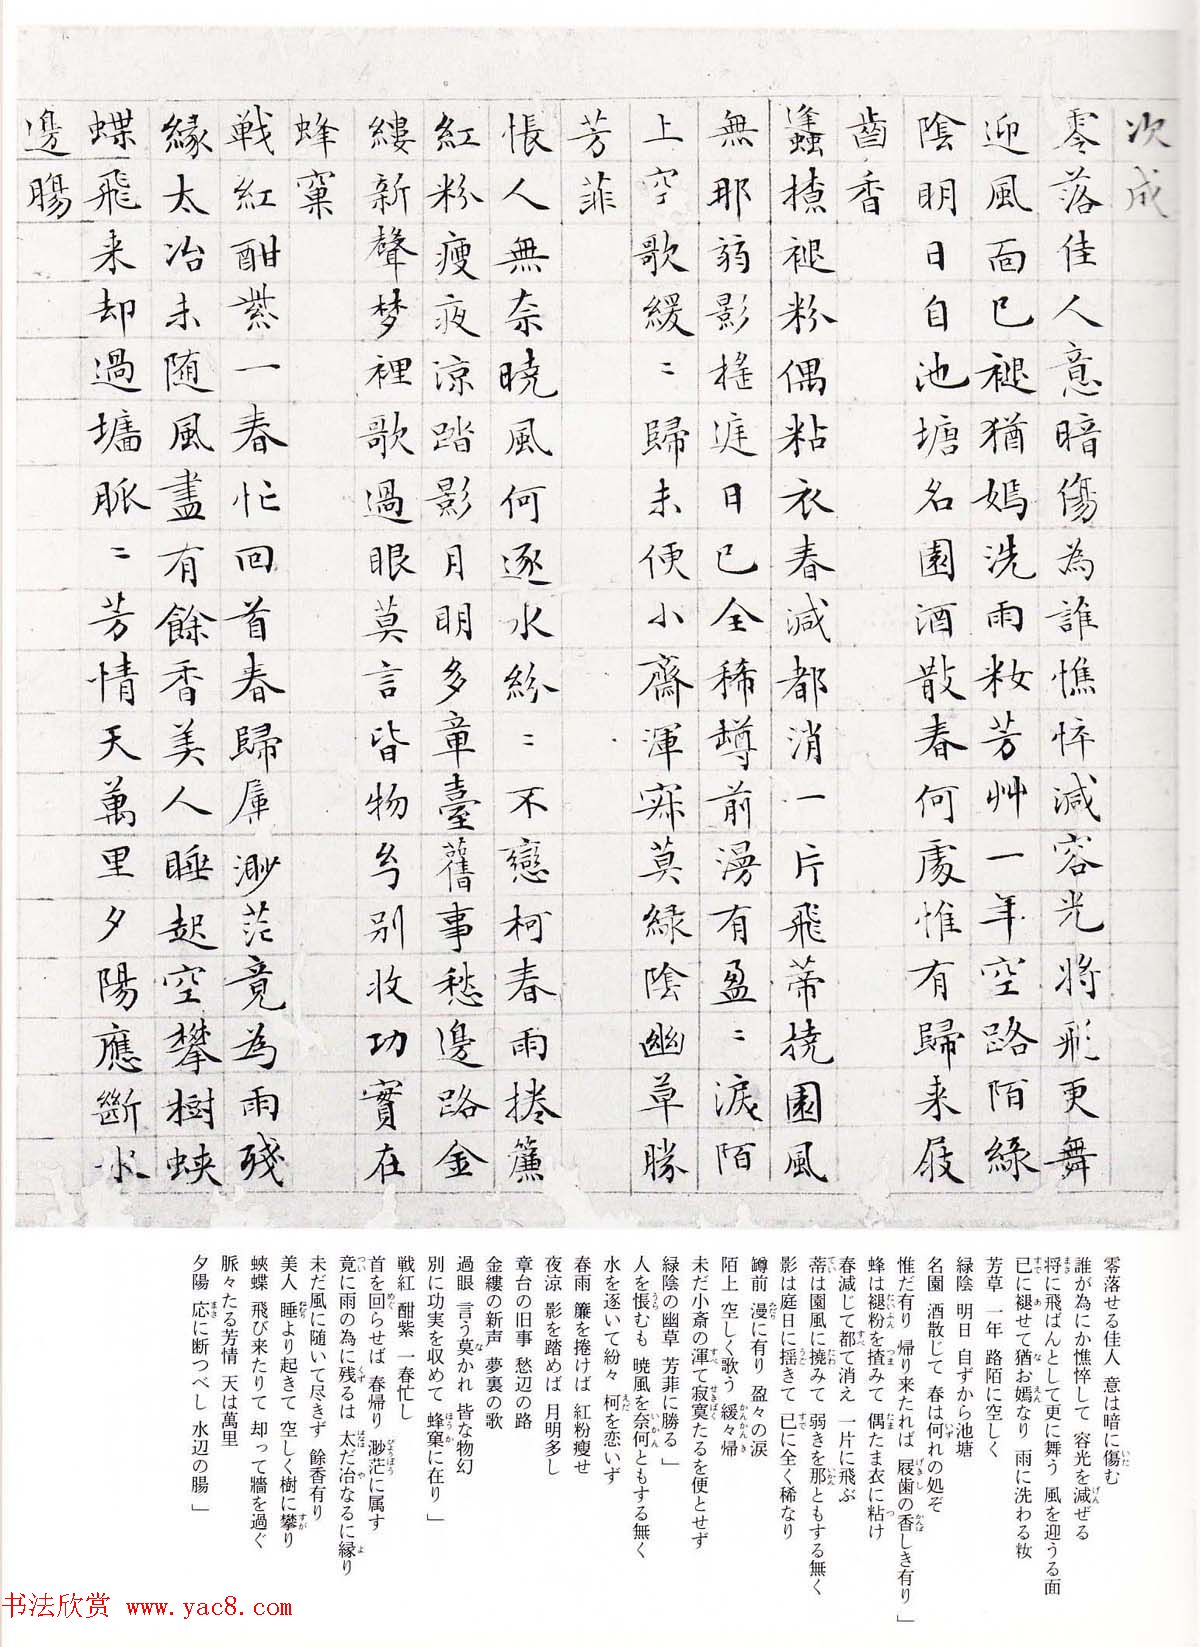 次成
零落佳人意暗傷為誰憔悴減容光将飛更舞
迎風面已褪猶嫣洗雨粧芳艸一年空路陌緑
陰明日自池塘名園酒散春何處惟有歸来屐
齒香
蜂揸褪粉偶粘衣春減都消一片飛蒂撓園風
無那弱影摇庭日已全稀罇前漫有盈〻淚陌
上空歌緩〻歸未便小齋渾寂莫緑陰幽草勝
芳菲
悵人無奈曉風何逐水紛〻不戀柯春雨捲簾
紅粉瘦夜涼踏影月明多章臺舊事愁邊路金
縷新聲梦裡歌過眼莫言皆物幻别收功實在
蜂窠
戦紅酣紫一春忙回首春歸屬渺茫竟為雨殘
緣太冶未随風盡有餘香美人睡起空攀樹蛺
蝶飛来却過墻脈〻芳情天萬里夕陽應斷水
邊腸
零落せる佳人 意は暗に傷む
誰が為にか憔悴して 容光を減ぜる
将に飛ばんとして更に舞う 風を迎うる面
已に褪せて猶お嫣なり 雨に洗わる粧
芳草 一年 路陌に空しく
緑陰 明日 自ずから池塘
名園 酒散じて 春は何れの処ぞ
惟だ有り 帰り来たれば 屐歯の香しき有り」
蜂は褪粉を揸みて 偶たま衣に粘け
春減じて都て消え 一片に飛ぶ
蒂は園風に撓みて 弱きを那ともする無く
影は庭日に揺きて 已に全く稀なり
罇前 漫に有り 盈々の涙
陌上 空しく歌う 緩々帰
未だ小斎の渾て寂莫たるを便とせず
緑陰の幽草 芳菲に勝る」
人を悵むも 暁風を奈何ともする無く
水を逐いて紛々 柯を恋いず
春雨 簾を捲けば 紅粉痩せ
夜涼 影を踏めば 月明多し
章台の旧事 愁辺の路
金縷の新声 夢裏の歌
過眼 言う莫かれ 皆な物幻
別に功実を収めて 蜂窠に在り」
戦紅 酣紫 一春忙し
首を回らせば 春帰り 渺茫に属す
竟に雨の為に残るは 太だ冶なるに縁り
未だ風に随いて尽きず 餘香有り
美人 睡より起きて 空しく樹に攀り
蛺蝶 飛び来たりて 却って牆を過ぐ
脈々たる芳情 天は萬里
夕陽 応に断つべし 水辺の腸」
书法欣赏 www.yac8.com